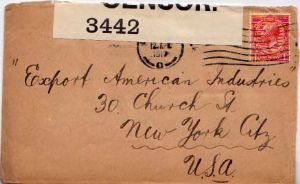 CENSOR.
3442
"Export American Industries
30. Church St.
New York City
U.S.A.